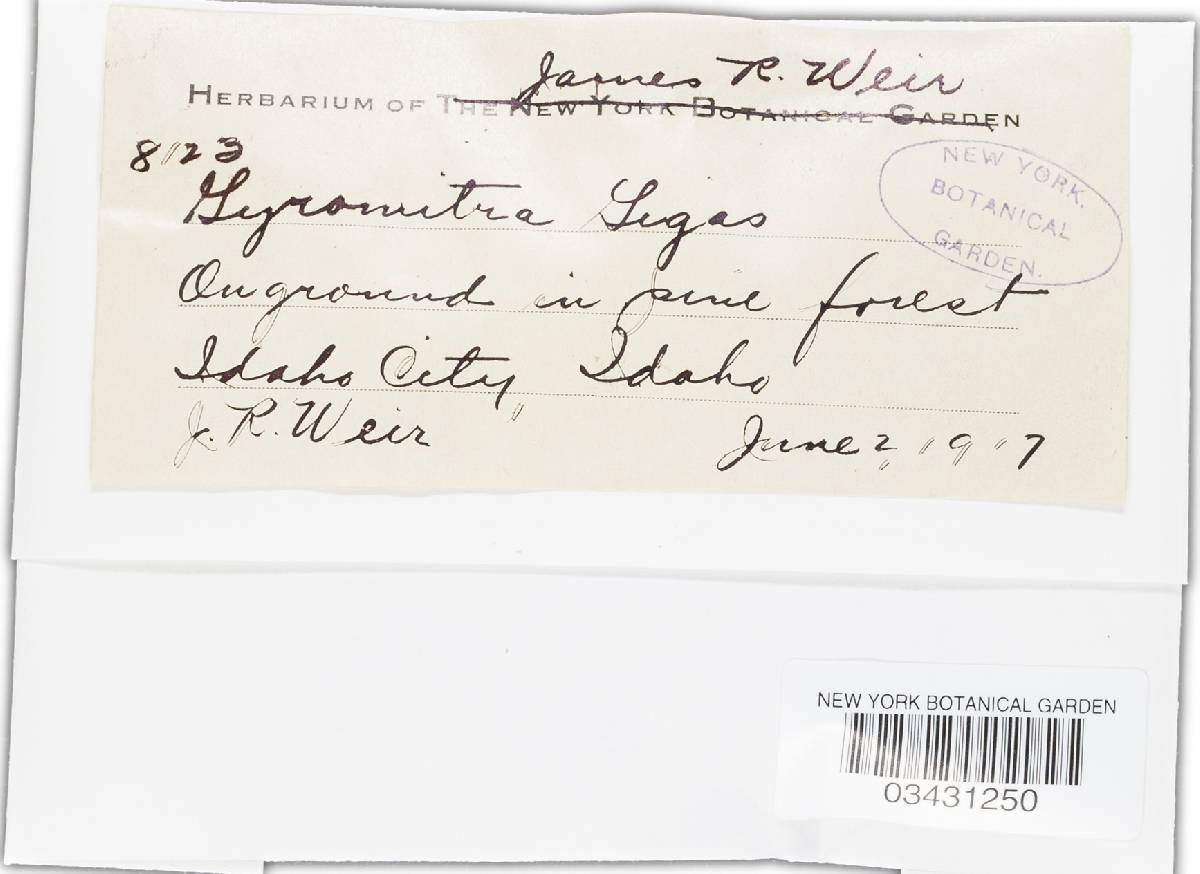 James R. Weir
HERBARIUM OF THE NEW YORK BOTANICAL GARDEN
8123
NEW YORK.
BOTANICAL
GARDEN.
Gyromitra Gigas
On ground in pine forest
Idaho City, Idaho
J. R. Weir June 2, 1917
NEW YORK BOTANICAL GARDEN
03431250